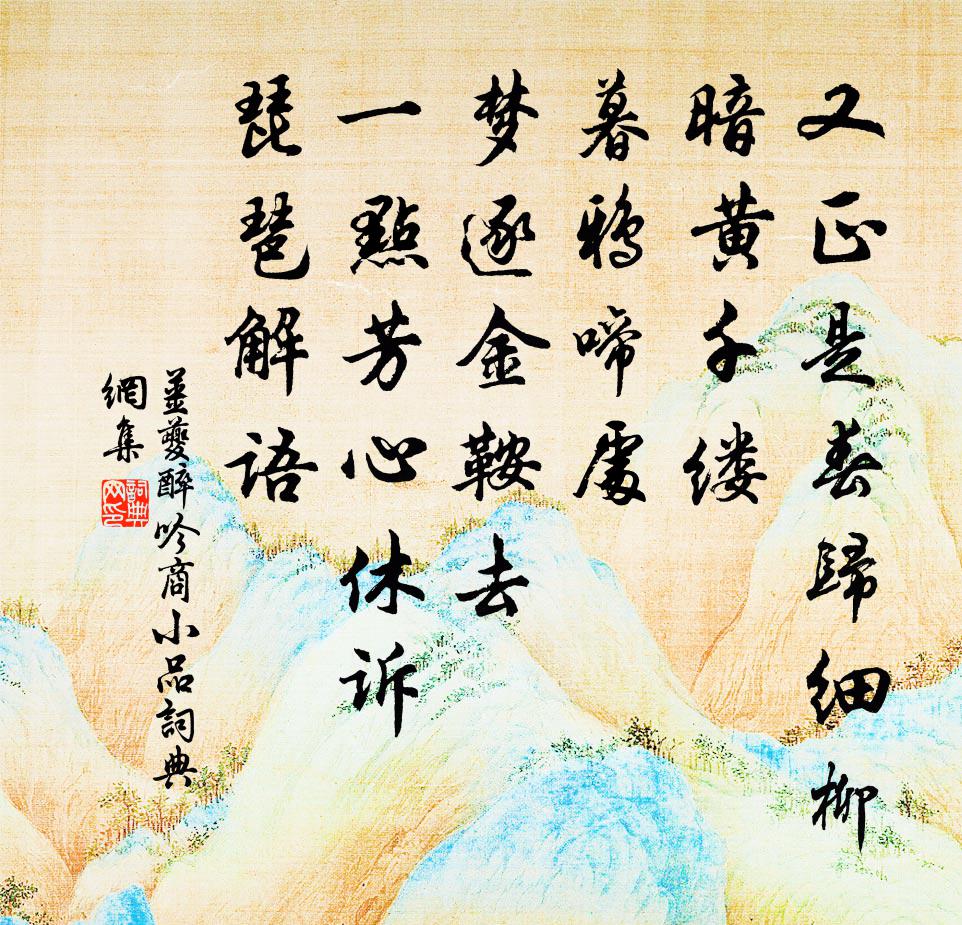 又正是春歸细柳
暗黄千缕
暮鴉啼處
梦逐金鞍去
一點芳心休诉
琵琶解语
姜夔醉吟商小品詞典
網集
詞典
网印